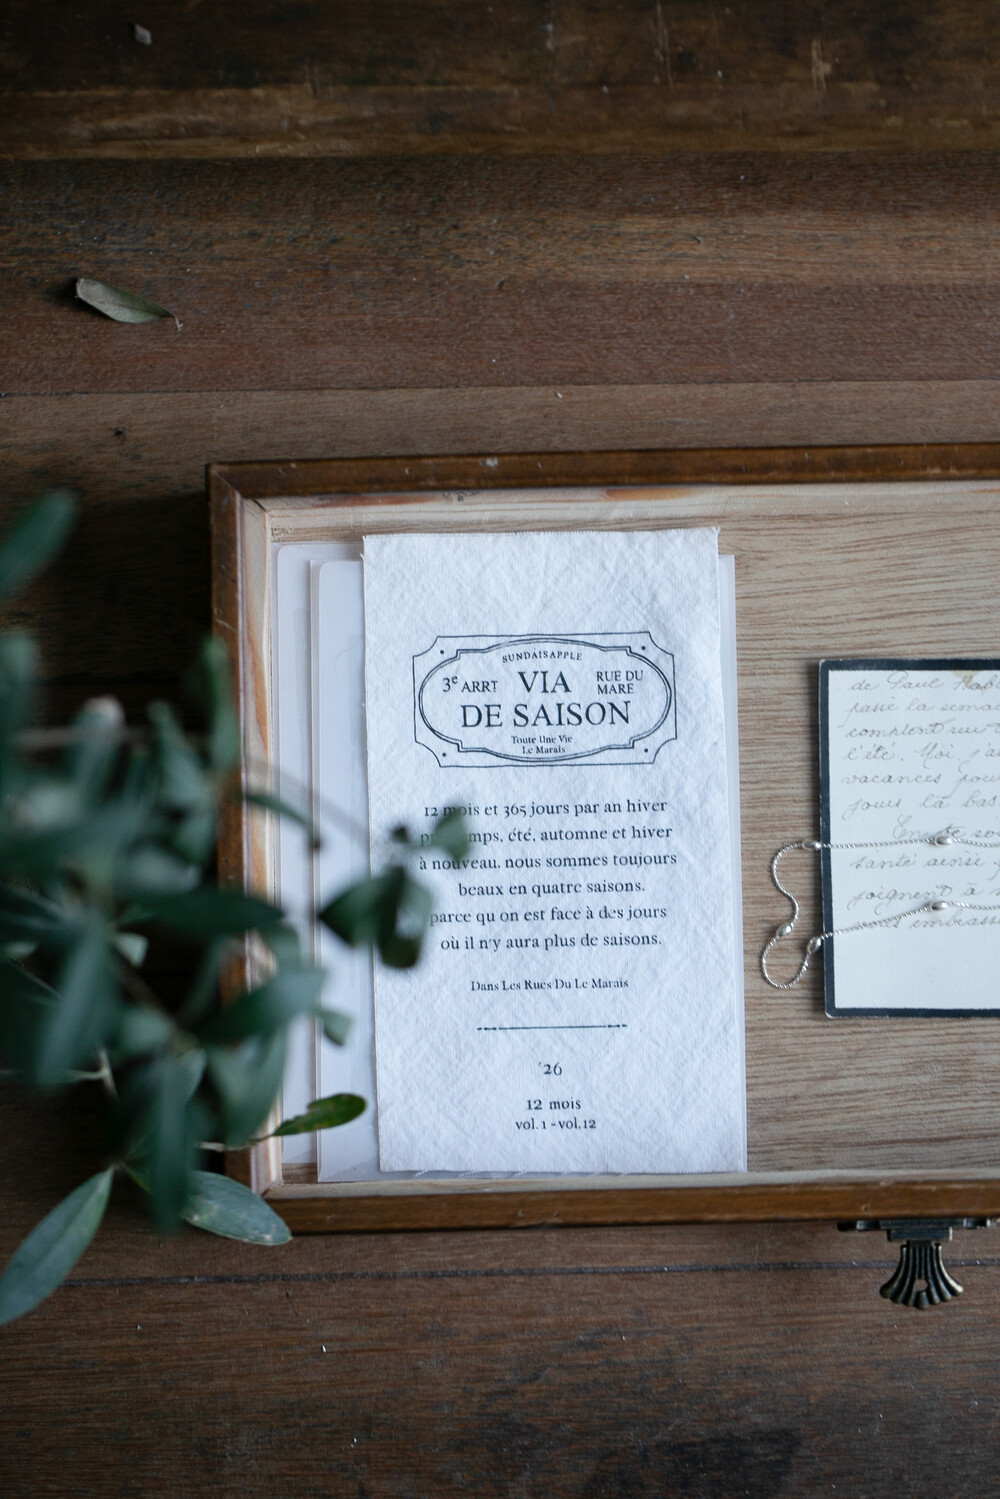 SUNDAISAPPLE
3e ARRT VIA RUE DU MARE
DE SAISON
Toute Une Vie
Le Marais
12 mois et 365 jours par an hiver
printemps, été, automne et hiver
à nouveau. nous sommes toujours
beaux en quatre saisons.
parce qu on est face à des jours
où il n'y aura plus de saisons.
Dans Les Rues Du Le Marais
'26
12 mois
vol.1-vol.12
de Paul
passé la
comptent sur
l'été. Moi j'ai
vacances pour
jours là bas
santé ainsi
joignent à